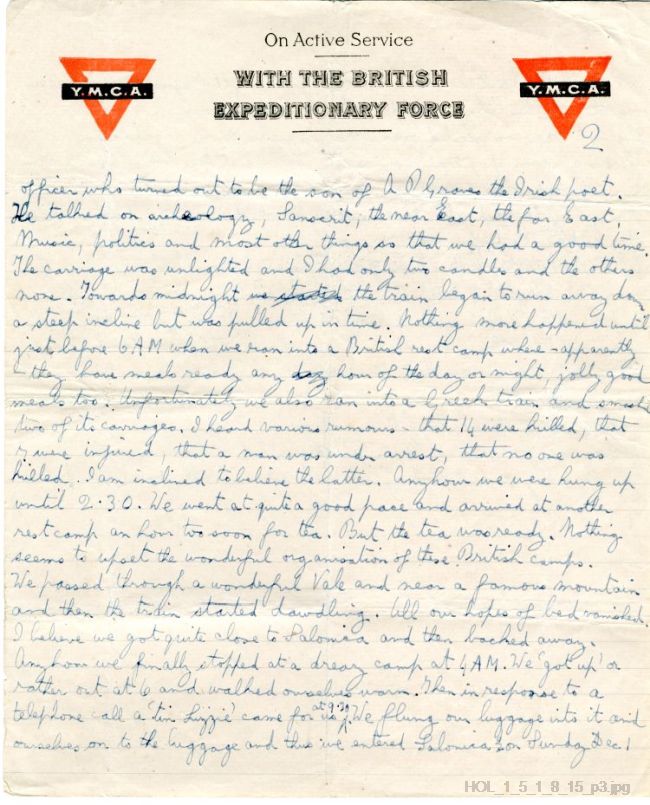 On Active Service
WITH THE BRITISH
EXPEDITIONARY FORCE
Y.M.C.A.
Y.M.C.A.
2
officer who turned out to be the son of A P Graves the Irish poet.
He talked on archeology, Sanscrit, the near East, the far East,
Music, politics and most other things so that we had a good time.
The carriage was unlighted and I had only two candles and the others
none. Towards midnight we started the train began to run away down
a steep incline but was pulled up in time. Nothing more happened until
just before 6 AM when we ran into a British rest camp where - apparently
- they have meals ready any day hour of the day or night, jolly good
meals too. Unfortunately we also ran into a Greek train and smashed
two of its carriages. I heard various rumours - that 14 were killed, that
7 were injured, that a man was under arrest, that no one was
killed. I am inclined to believe the latter. Anyhow we were hung up
until 2.30. We went at quite a good pace and arrived at another
rest camp an hour too soon for tea. But the tea was ready. Nothing
seems to upset the wonderful organisation of these British camps.
We passed through a wonderful Vale and near a famous mountain
and then the train started dawdling. All our hopes of bed vanished.
I believe we got quite close to Salonica and then backed away.
Anyhow we finally stopped at a dreary camp at 4 AM. We 'got up' or
rather out at 6 and walked ourselves warm. Then in response to a
telephone call a 'tin Lizzie' came for us at 9.30. We flung our luggage into it and
ourselves on to the luggage and thus we entered Salonica on Sunday Dec 1
HOL_1_5_1_8_15_p3.jpg